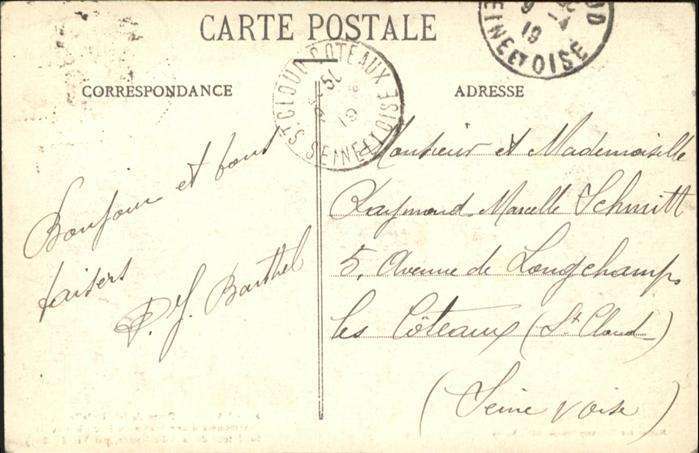 CARTE POSTALE
CORRESPONDANCE
ADRESSE
ST CLOUD COTEAUX
SEINE ET OISE
SEINE ET OISE
19
Bonjour et bons
baisers
P. J. Barthel
Monsieur et Mademoiselle
Raymond Marcelle Schmitt
5, Avenue de Longchamp,
les Côteaux (St Cloud)
(Seine & oise)